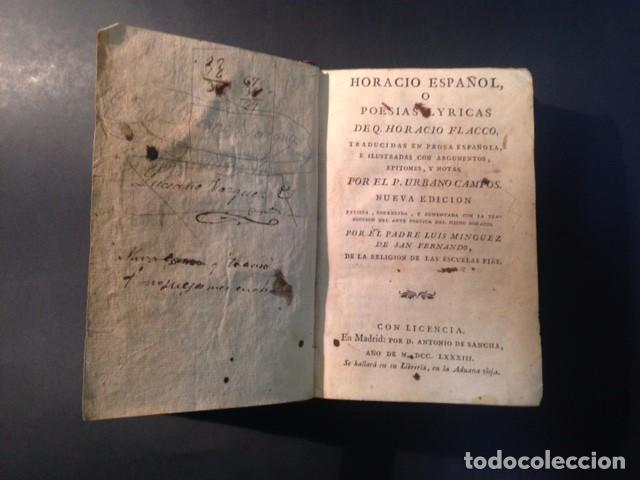 67
27
Luciano Vazquez
HORACIO ESPAÑOL,
O
POESIAS LYRICAS
DE Q. HORACIO FLACCO,
TRADUCIDAS EN PROSA ESPAÑOLA,
E ILUSTRADAS CON ARGUMENTOS,
EPITOMES, Y NOTAS
POR EL P. URBANO CAMPOS.
NUEVA EDICION
REVISTA, CORREGIDA, Y AUMENTADA CON LA TRA-
DUCCION DEL ARTE POETICA DEL MISMO HORACIO
POR EL PADRE LUIS MINGUEZ
DE SAN FERNANDO,
DE LA RELIGION DE LAS ESCUELAS PIAS.
CON LICENCIA.
En Madrid: POR D. ANTONIO DE SANCHA,
AÑO DE M.DCC. LXXXIII.
Se hallará en su Librería, en la Aduana vieja.
todocoleccion